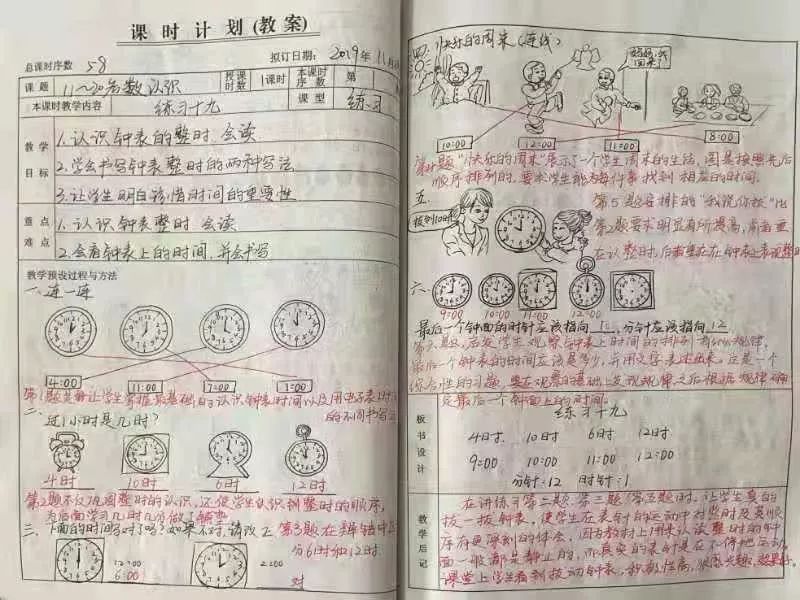 课时计划(教案)
总课时序数 58 拟订日期: 2019年11月
课题 11~20各数认识 授课时数 1课时 本课时序数 第
本课时教学内容 练习十九 课型 练习
教学目标
1.认识钟表的整时,会读
2.学会书写钟表整时的两种写法
3.让学生明白珍惜时间的重要性
重点难点
1.认识钟表整时,会读
2.会看钟表上的时间,并会书写
教学预设过程与方法
一、连一连
4:00 11:00 7:00 1:00
第1题是让学生掌握最基础的认识钟表时间以及用电子表
的不同书写
二、过1小时是几时?
4时 10时 6时 12时
第2题不仅巩固整时的认识,还使学生认识到整时的顺序,
为后面学习几时几分做了铺垫
三、下面的时间写对了吗?如果不对,请改正 第3题在
分6时和12时.
12:00
6:00
2:00
对
四、快乐的周末(连线)
妈妈,我回来了
10:00 12:00 11:00 8:00
第4题"快乐的周末"展示了一个学生周末的生活,图是按照先后
顺序排列的,要求学生能为每件事找到相应的时间.
五、
拨到10时
第5题安排的"我说你拨"比
第2题要求明显有所提高,前者重
在认整时,后者重在在钟表上表现整时
六、
9:00 10:00 11:00 12:00
最后一个钟面的时针应该指向 1,分针应该指向 12
第六题,启发学生观察钟表上时间的排列有什么规律,
最后一个钟表的时间应该是多少,并用文字表述出来,这是一个
综合性的习题,要在观察的基础上发现规律之后根据规律确
定最后一个钟面上的时间.
板书设计
练习十九
4时 10时 6时 12时
9:00 10:00 11:00 12:00
分针:12 时针:1
教学后记
在讲练习第二题、第三题、第五题时,让学生真的
拨一拨钟表,使学生在表针的运动中对整时及其顺
序有更深刻的体会,因为教材上用来认读整时的钟
面一般都是静止的,而真实的表针是在不停地运动
课堂上学生看到拨动钟表,积极性高,很感兴趣,效果好.